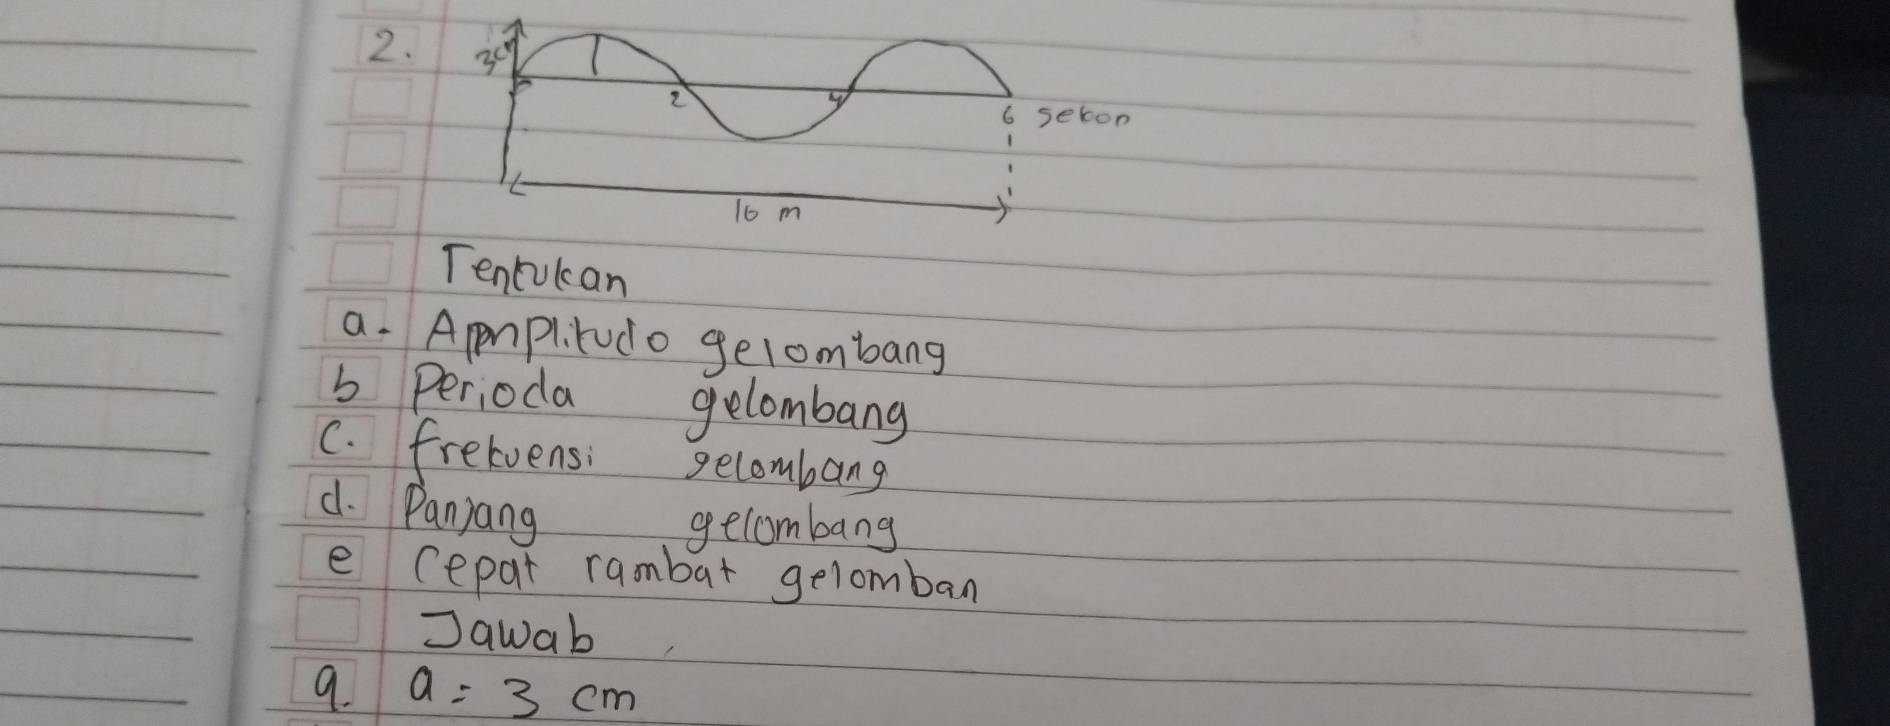 2.
3cm
2
4
6 sekon
16 m
Tentukan
a. Ampmplitudo gelombang
b Perioda gelombang
c. frekuensi gelombang
d. Panjang gelombang
e cepat rambat gelomban
Jawab
a. a = 3 cm